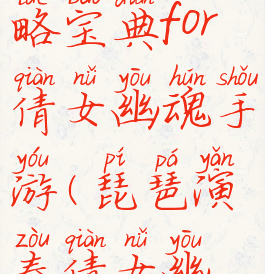 略宝典for
qiàn nǚ yōu hún shǒu
倩女幽魂手
yóu pí pá yǎn
游(琵琶演
zòu qiàn nǚ yōu
奏倩女幽